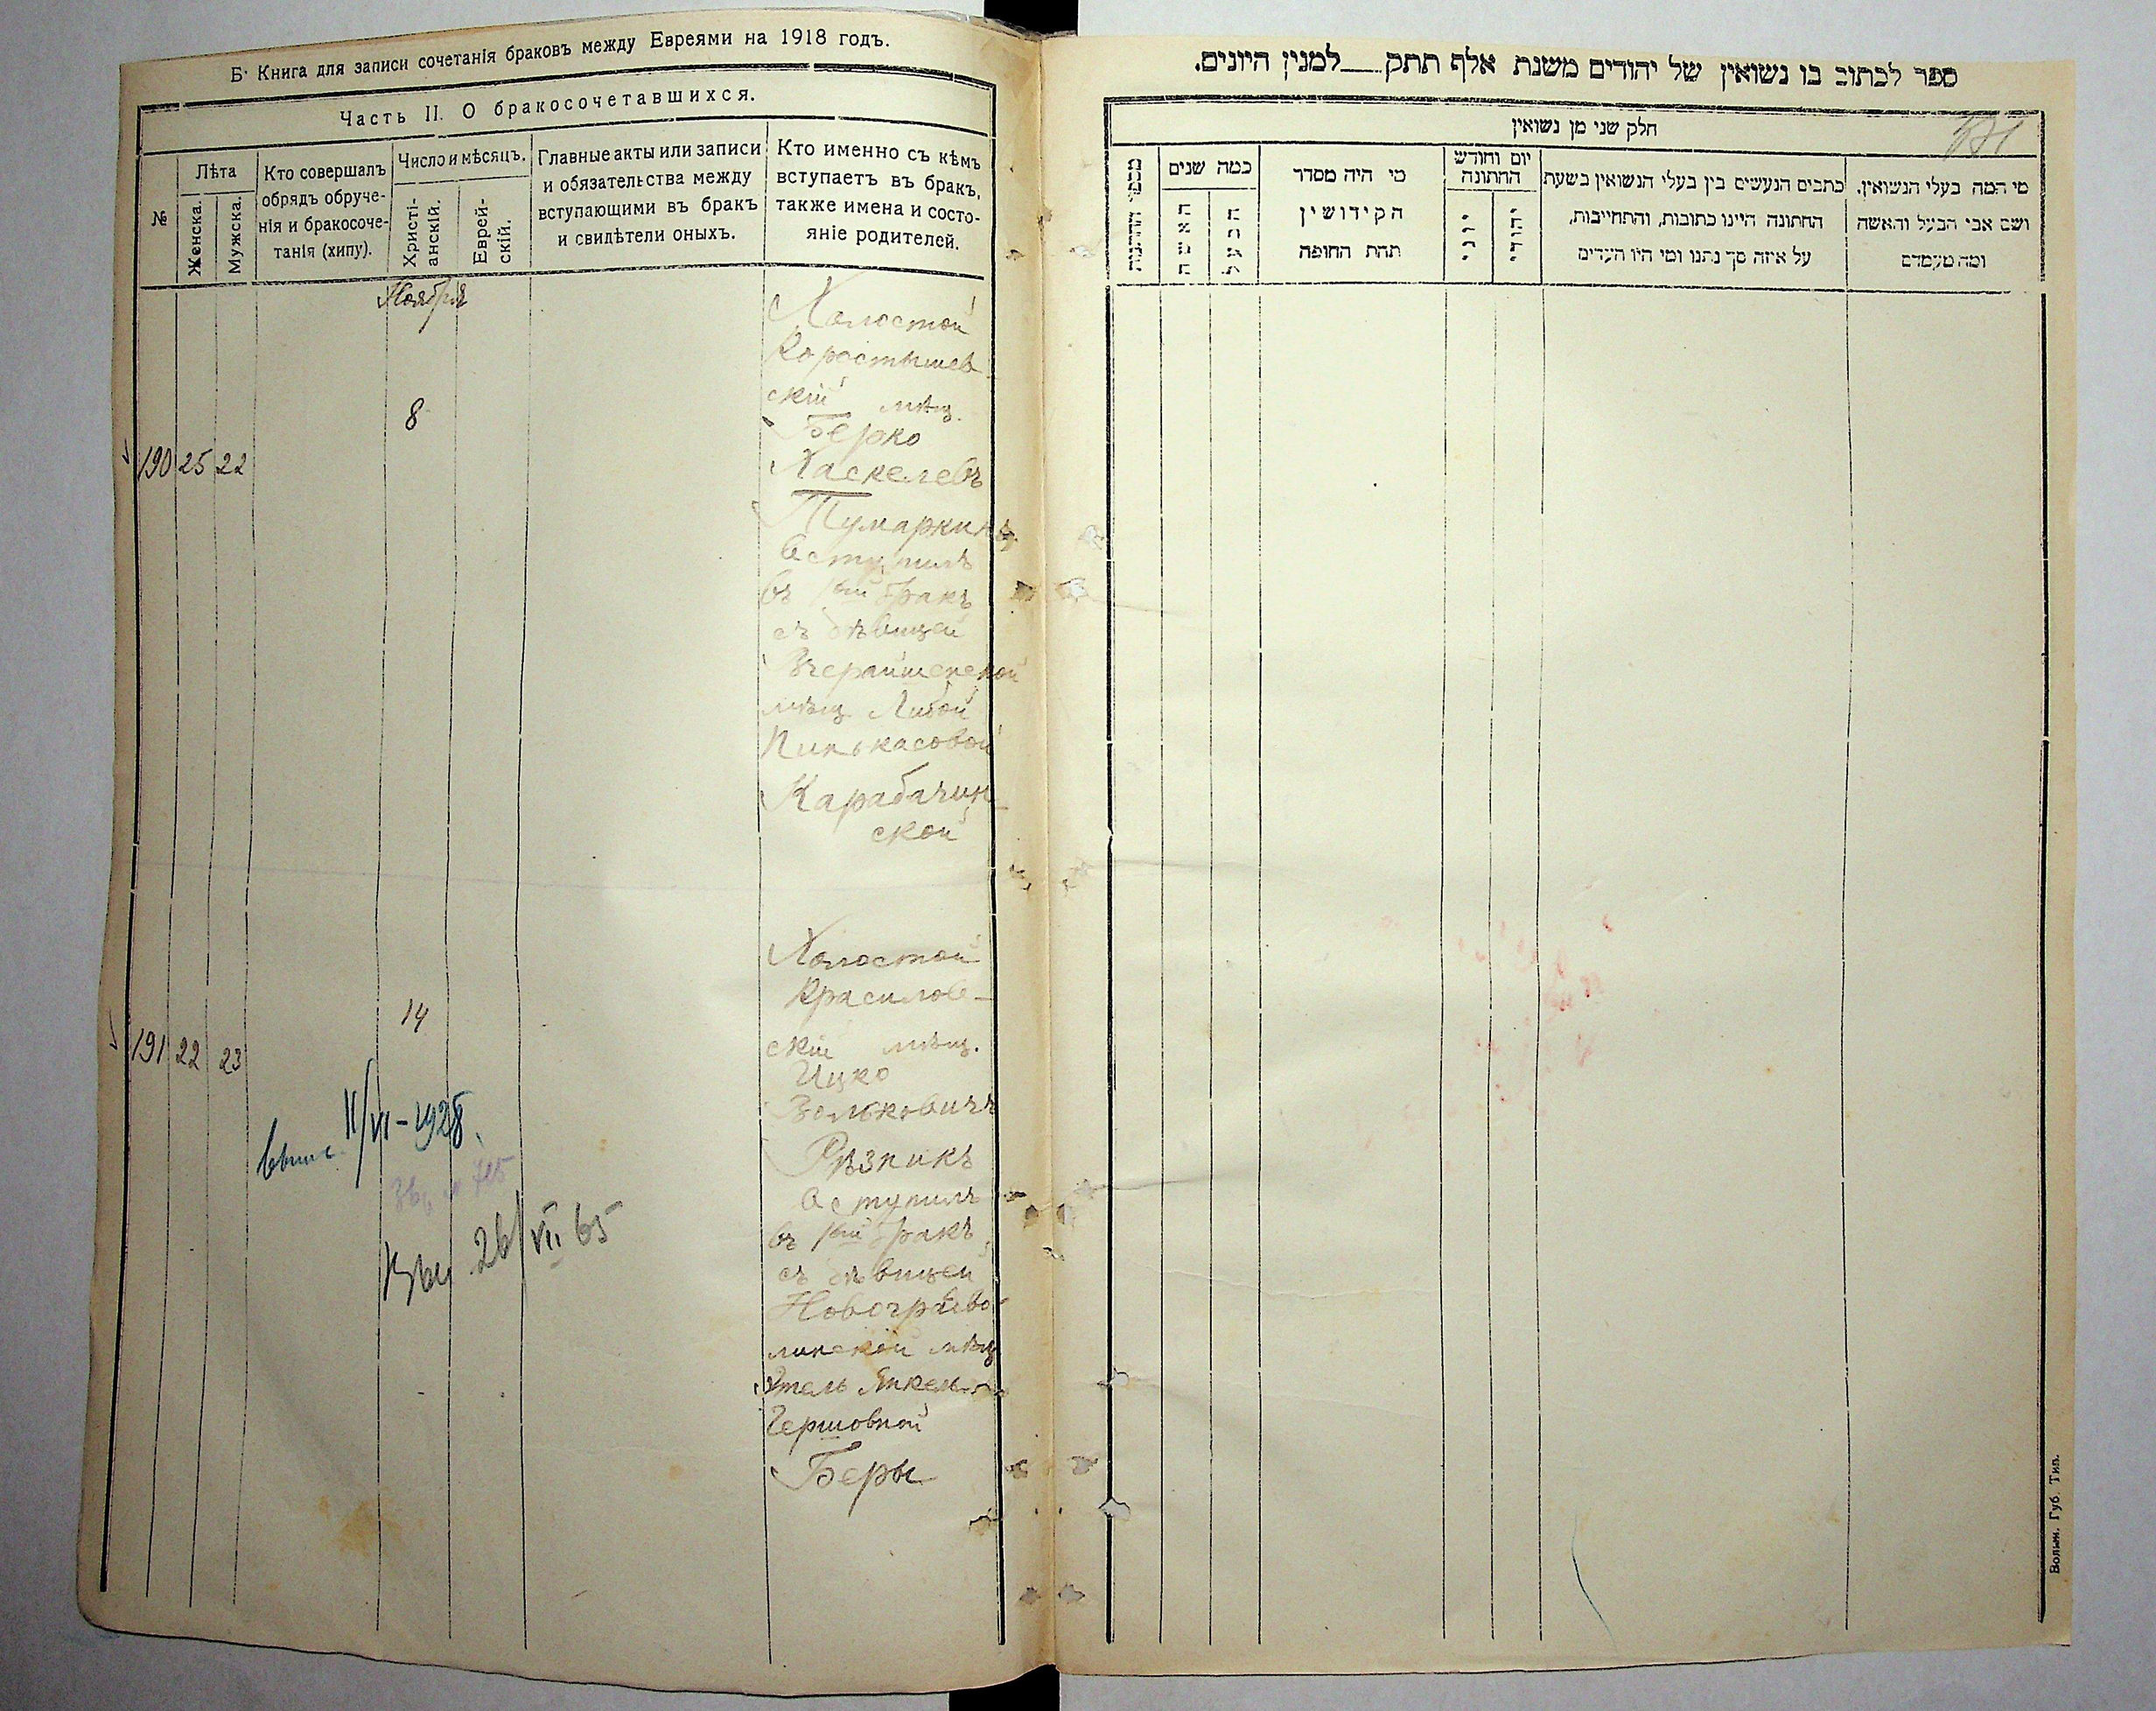 Б. Книга для записи сочетанія браковъ между Евреями на 1918 годъ.
Часть II. О бракосочетавшихся.
№
Лѣта
Женска.
Мужска.
Кто совершалъ
обрядъ обруче-
нія и бракосоче-
танія (хипу).
Число и мѣсяцъ.
Христі-
анскій.
Еврей-
скій.
Главные акты или записи
и обязательства между
вступающими въ бракъ
и свидѣтели оныхъ.
Кто именно съ кѣмъ
вступаетъ въ бракъ,
также имена и состо-
яніе родителей.
Ноября
190 25 22
8
Холостой
Коростышев
скій мѣщ.
Берко
Хаскелевъ
Тумаркинъ
вступилъ
въ 1ый бракъ
съ дѣвицей
Вчерайшенской
мѣщ Либой
Пинькасовой
Карабачин
ской
191 22 23
14
Холостой
Красилов-
скій мѣщ.
Ицко
Вольковичъ
Рѣзникъ
вступилъ
въ 1ый бракъ
съ дѣвицей
Новоградво-
линской мѣщ
Этель Янкель
Гершовной
Беры
II/VI-1928.
26/VII 65
ספר לכתוב בו נשואין של יהודים משנת אלף תתק__למנין היונים.
חלק שני מן נשואין
מי המה בעלי הנשואין,
ושם אבי הבעל והאשה
ומה מעמדם
כתבים הנעשים בין בעלי הנשואין בשעת
החתונה היינו כתובות, והתחייבות,
על איזה סך נתנו ומי היו העדים
יום וחודש
החתונה
יהודי
יוני
מי היה מסדר
הקידושין
תחת החופה
כמה שנים
הבעל
האשה
Волын. Губ. Тип.